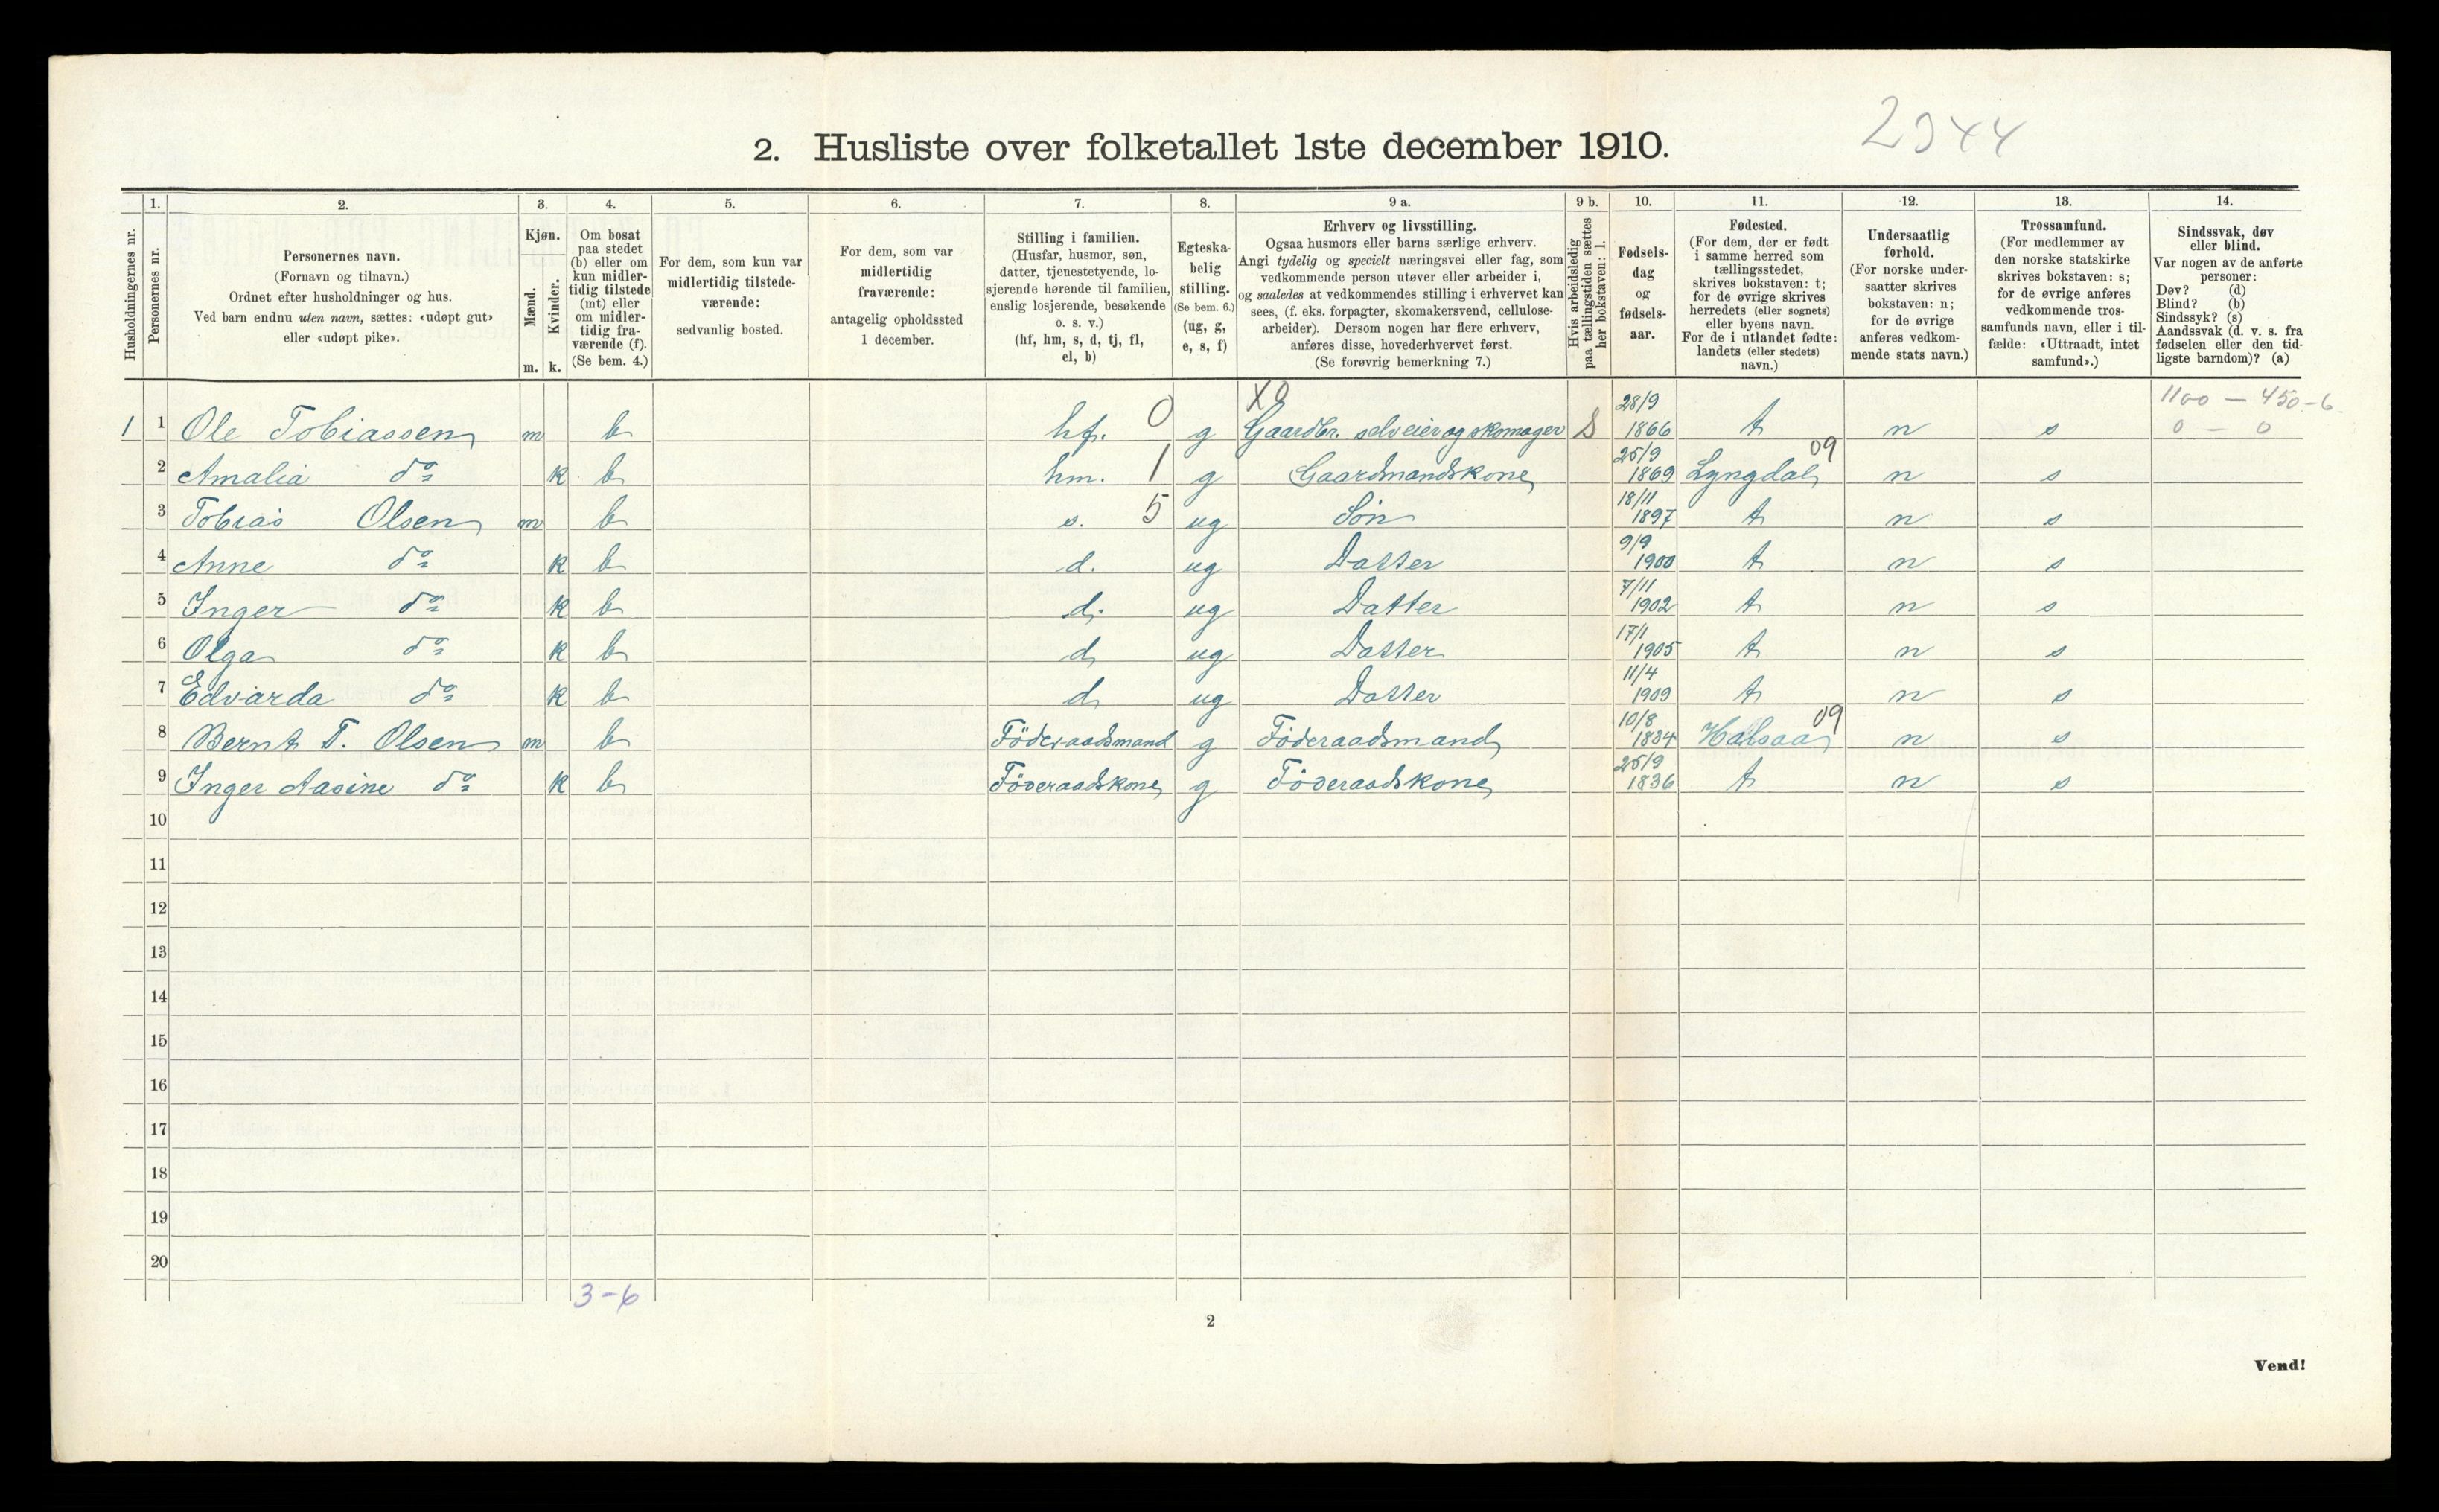 2. Husliste over folketallet 1ste december 1910.
Husholdningernes nr.
1.
Personernes nr.
2.
Personernes navn.
(Fornavn og tilnavn.)
Ordnet efter husholdninger og hus.
Ved barn endnu uten navn, sættes: «udøpt gut»
eller «udøpt pike».
3.
Kjøn.
Mænd.
Kvinder.
m. k.
4.
Om bosat
paa stedet
(b) eller om
kun midler-
tidig tilstede
(mt) eller
om midler-
tidig fra-
værende (f).
(Se bem. 4.)
5.
For dem, som kun var
midlertidig tilstede-
værende:
sedvanlig bosted.
6.
For dem, som var
midlertidig
fraværende:
antagelig opholdssted
1 december.
7.
Stilling i familien.
(Husfar, husmor, søn,
datter, tjenestetyende, lo-
sjerende hørende til familien,
enslig losjerende, besøkende
o. s. v.)
(hf, hm, s, d, tj, fl,
el, b)
8.
Egteska-
belig
stilling.
(Se bem. 6.)
(ug, g,
e, s, f)
9 a.
Erhverv og livsstilling.
Ogsaa husmors eller barns særlige erhverv.
Angi tydelig og specielt næringsvei eller fag, som
vedkommende person utøver eller arbeider i,
og saaledes at vedkommendes stilling i erhvervet kan
sees, (f. eks. forpagter, skomakersvend, cellulose-
arbeider). Dersom nogen har flere erhverv,
anføres disse, hovederhvervet først.
(Se forøvrig bemerkning 7.)
9 b.
Hvis arbeidsledig
paa tællingstiden sættes
her bokstaven: l.
10.
Fødsels-
dag
og
fødsels-
aar.
11.
Fødested.
(For dem, der er født
i samme herred som
tællingsstedet,
skrives bokstaven: t;
for de øvrige skrives
herredets (eller sognets)
eller byens navn.
For de i utlandet fødte:
landets (eller stedets)
navn.)
12.
Undersaatlig
forhold.
(For norske under-
saatter skrives
bokstaven: n;
for de øvrige
anføres vedkom-
mende stats navn.)
13.
Trossamfund.
(For medlemmer av
den norske statskirke
skrives bokstaven: s;
for de øvrige anføres
vedkommende tros-
samfunds navn, eller i til-
fælde: «Uttraadt, intet
samfund».)
14.
Sindssvak, døv
eller blind.
Var nogen av de anførte
personer:
Døv? (d)
Blind? (b)
Sindssyk? (s)
Aandssvak (d. v. s. fra
fødselen eller den tid-
ligste barndom)? (a)
1100 - 450-6
1 1 Ole Tobiassen m b hf. 0 g Gaardbr. selveier og skomager S 28/9 1866 t n s 0 - 0
2 Amalia do k b hm. 1 g Gaardmandskone 25/9 1869 Lyngdal 09 n s
3 Tobias Olsen m b s. 5 ug Søn 18/11 1897 t n s
4 Anne do k b d. ug Datter 9/9 1900 t n s
5 Inger do k b d. ug Datter 7/11 1902 t n s
6 Olga do k b d ug Datter 17/1 1905 t n s
7 Edvarda do k b d ug Datter 11/4 1909 t n s
8 Bernt T. Olsen m b Föderaadsmand g Föderaadsmand 10/8 1834 Halsaa 09 n s
9 Inger Aasine do k b Föderaadskone g Föderaadskone 25/9 1836 t n s
10
11
12
13
14
15
16
17
18
19
20
3-6
2
Vend!